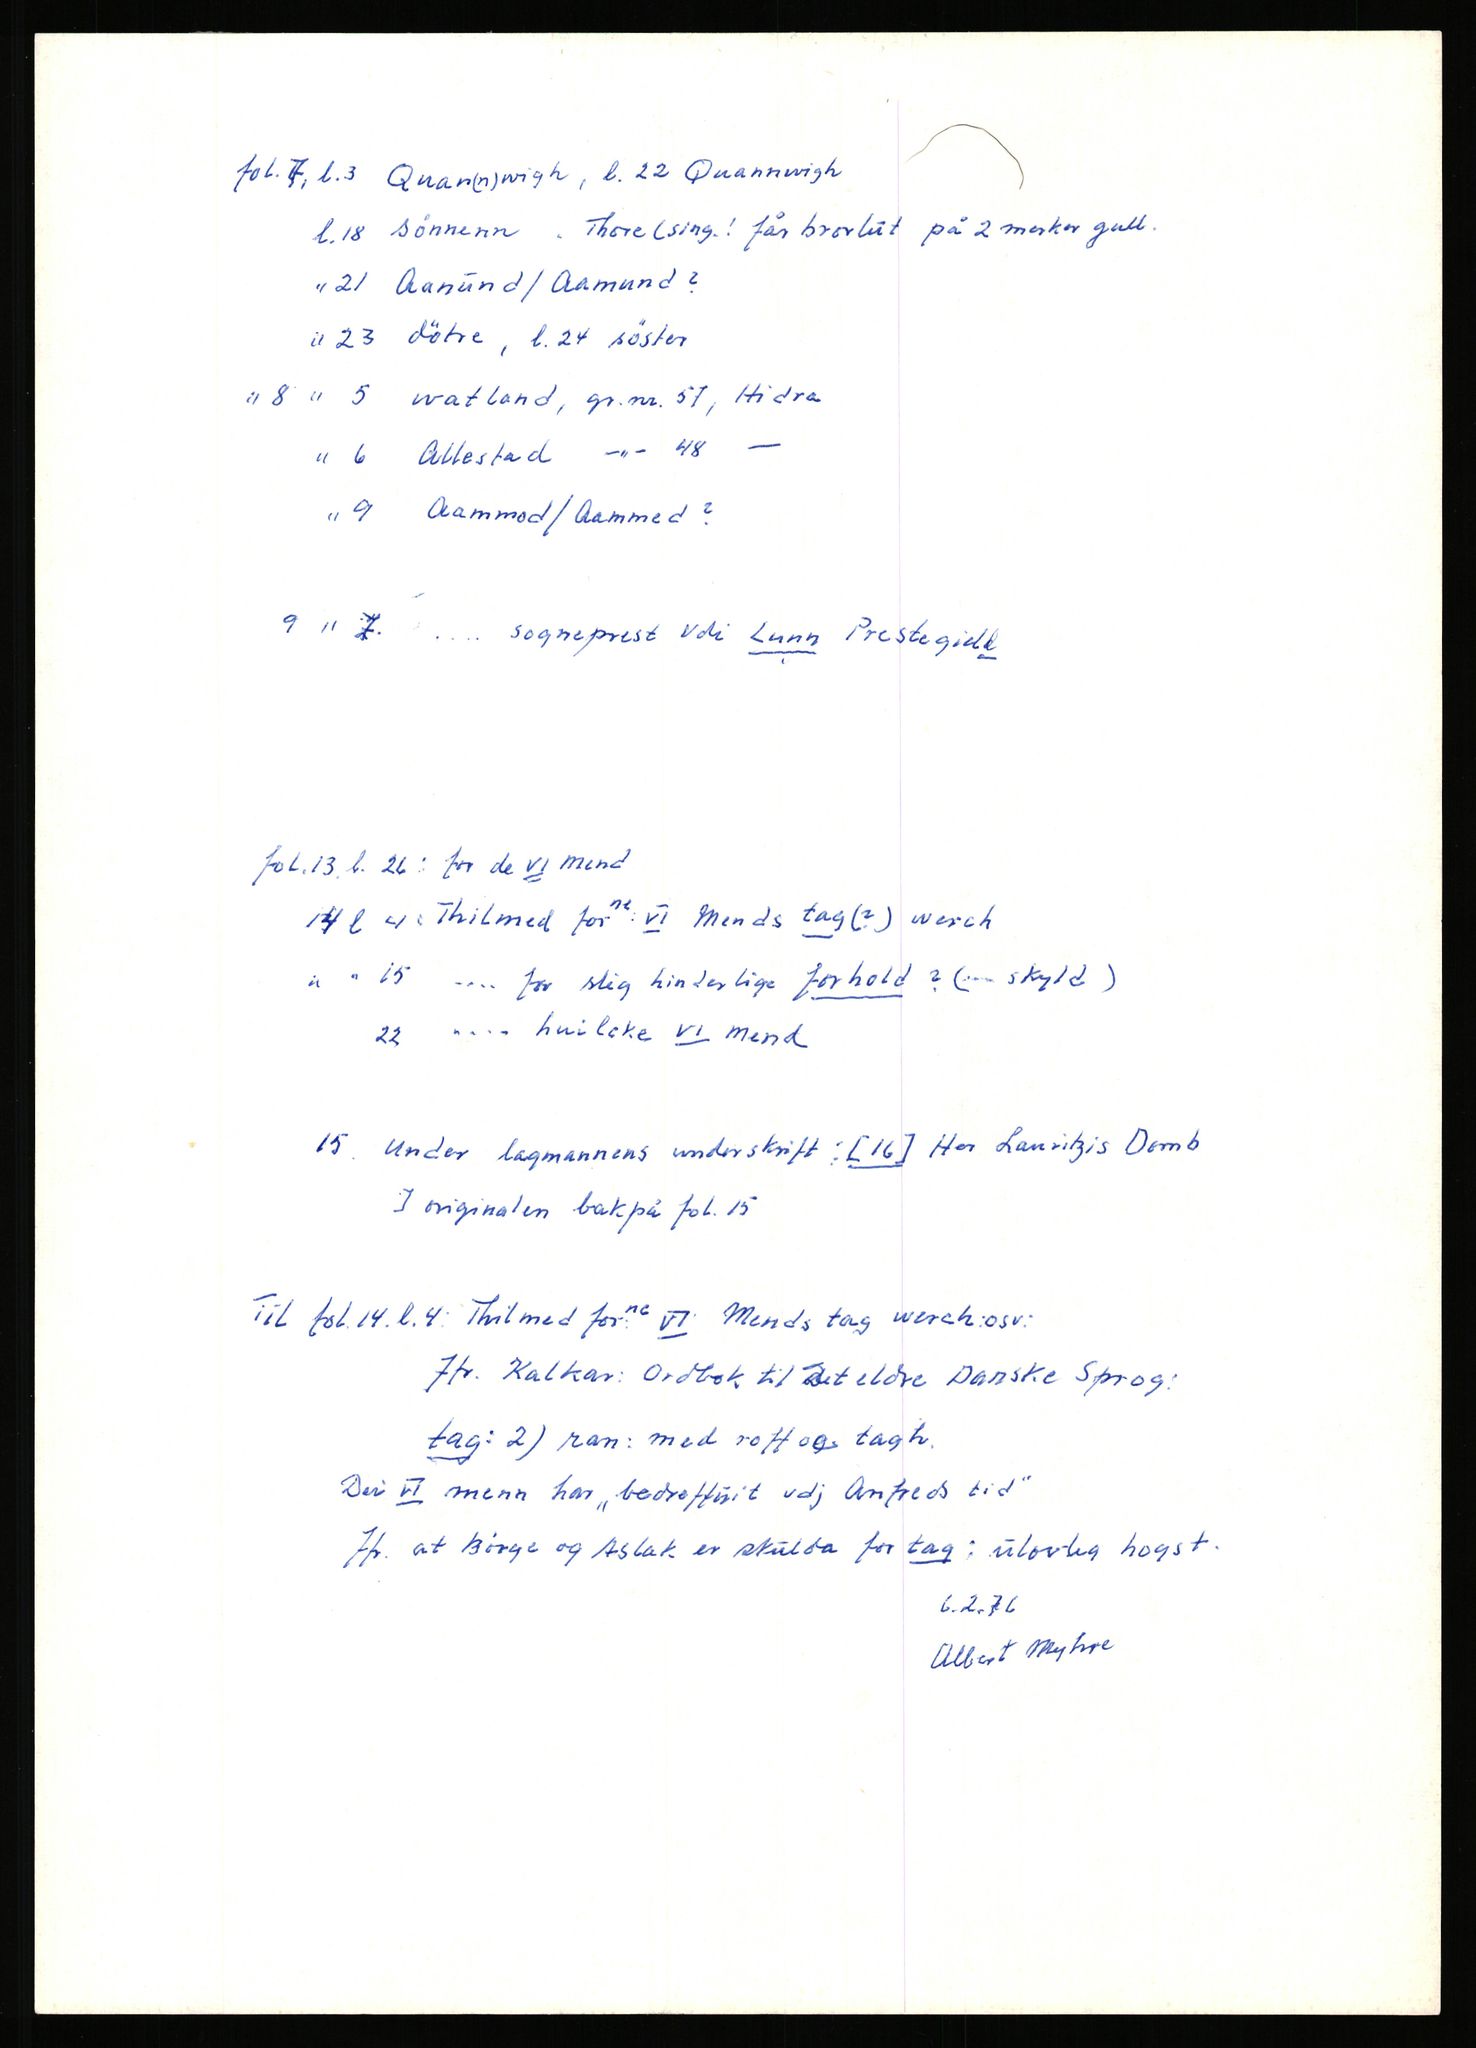 fol. 7, l.3 Quan(n)wigh, l. 22 Quannwigh
l.18 sönnenn . Thore (sing.! får brorlut på 2 merker gull.
" 21 Aanund/Aamund?
" 23 dötre, l. 24 söster
" 8 " 5 watland, gr.nr. 57, Hidra
" 6 Allestad -"- 48 —
" 9 Aammod/Aammed?
9 " 7. .... sogneprest vdi Lunn Prestegield
fol. 13. l. 26: for de VI Mend
14 l 4: Thilmed for ne: VI Mends tag(?) werch
" " 15 .... for slig hinderlige forhold? (... skyld)
22 .... huilcke VI Mend
15. Under lagmannens underskrift: [16] Her Lauritzis Domb
I originalen bakpå fol. 15
Til fol. 14. l. 4: Thilmed for ne VI Mends tag werch:osv:
Jfr. Kalkar: Ordbok til Det eldre Danske Sprog:
tag: 2) ran: med roff og tagh.
Dei VI menn har „bedreffuit vdj Anfreds tid"
Jfr. at Börge og Aslak er skulda for tag: ulovleg hogst.
6.2.76
Albert Myhre